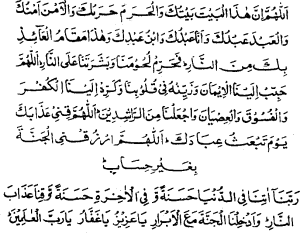 اَللّٰهُمَّ اِنَّ هٰذَا الْبَيْتَ بَيْتُكَ وَالْحَرَمَ حَرَمُكَ وَالْاَمْنَ اَمْنُكَ
وَالْعَبْدَ عَبْدُكَ وَاَنَا عَبْدُكَ وَابْنُ عَبْدِكَ وَهٰذَا مَقَامُ الْعَآئِذِ
بِكَ مِنَ النَّارِ فَحَرِّمْ لُحُوْمَنَا وَبَشَرَتَنَا عَلَى النَّارِ اَللّٰهُمَّ
حَبِّبْ اِلَيْنَا الْاِيْمَانَ وَزَيِّنْهُ فِيْ قُلُوْبِنَا وَكَرِّهْ اِلَيْنَا الْكُفْرَ
وَالْفُسُوْقَ وَالْعِصْيَانَ وَاجْعَلْنَا مِنَ الرَّاشِدِيْنَ اَللّٰهُمَّ قِنِيْ عَذَابَكَ
يَوْمَ تَبْعَثُ عِبَادَكَ اَللّٰهُمَّ ارْزُقْنِي الْجَنَّةَ
بِغَيْرِ حِسَابٍ
رَبَّنَا اٰتِنَا فِي الدُّنْيَا حَسَنَةً وَّفِي الْاٰخِرَةِ حَسَنَةً وَّقِنَا عَذَابَ
النَّارِ وَاَدْخِلْنَا الْجَنَّةَ مَعَ الْاَبْرَارِ يَا عَزِيْزُ يَا غَفَّارُ يَا رَبَّ الْعٰلَمِيْنَ